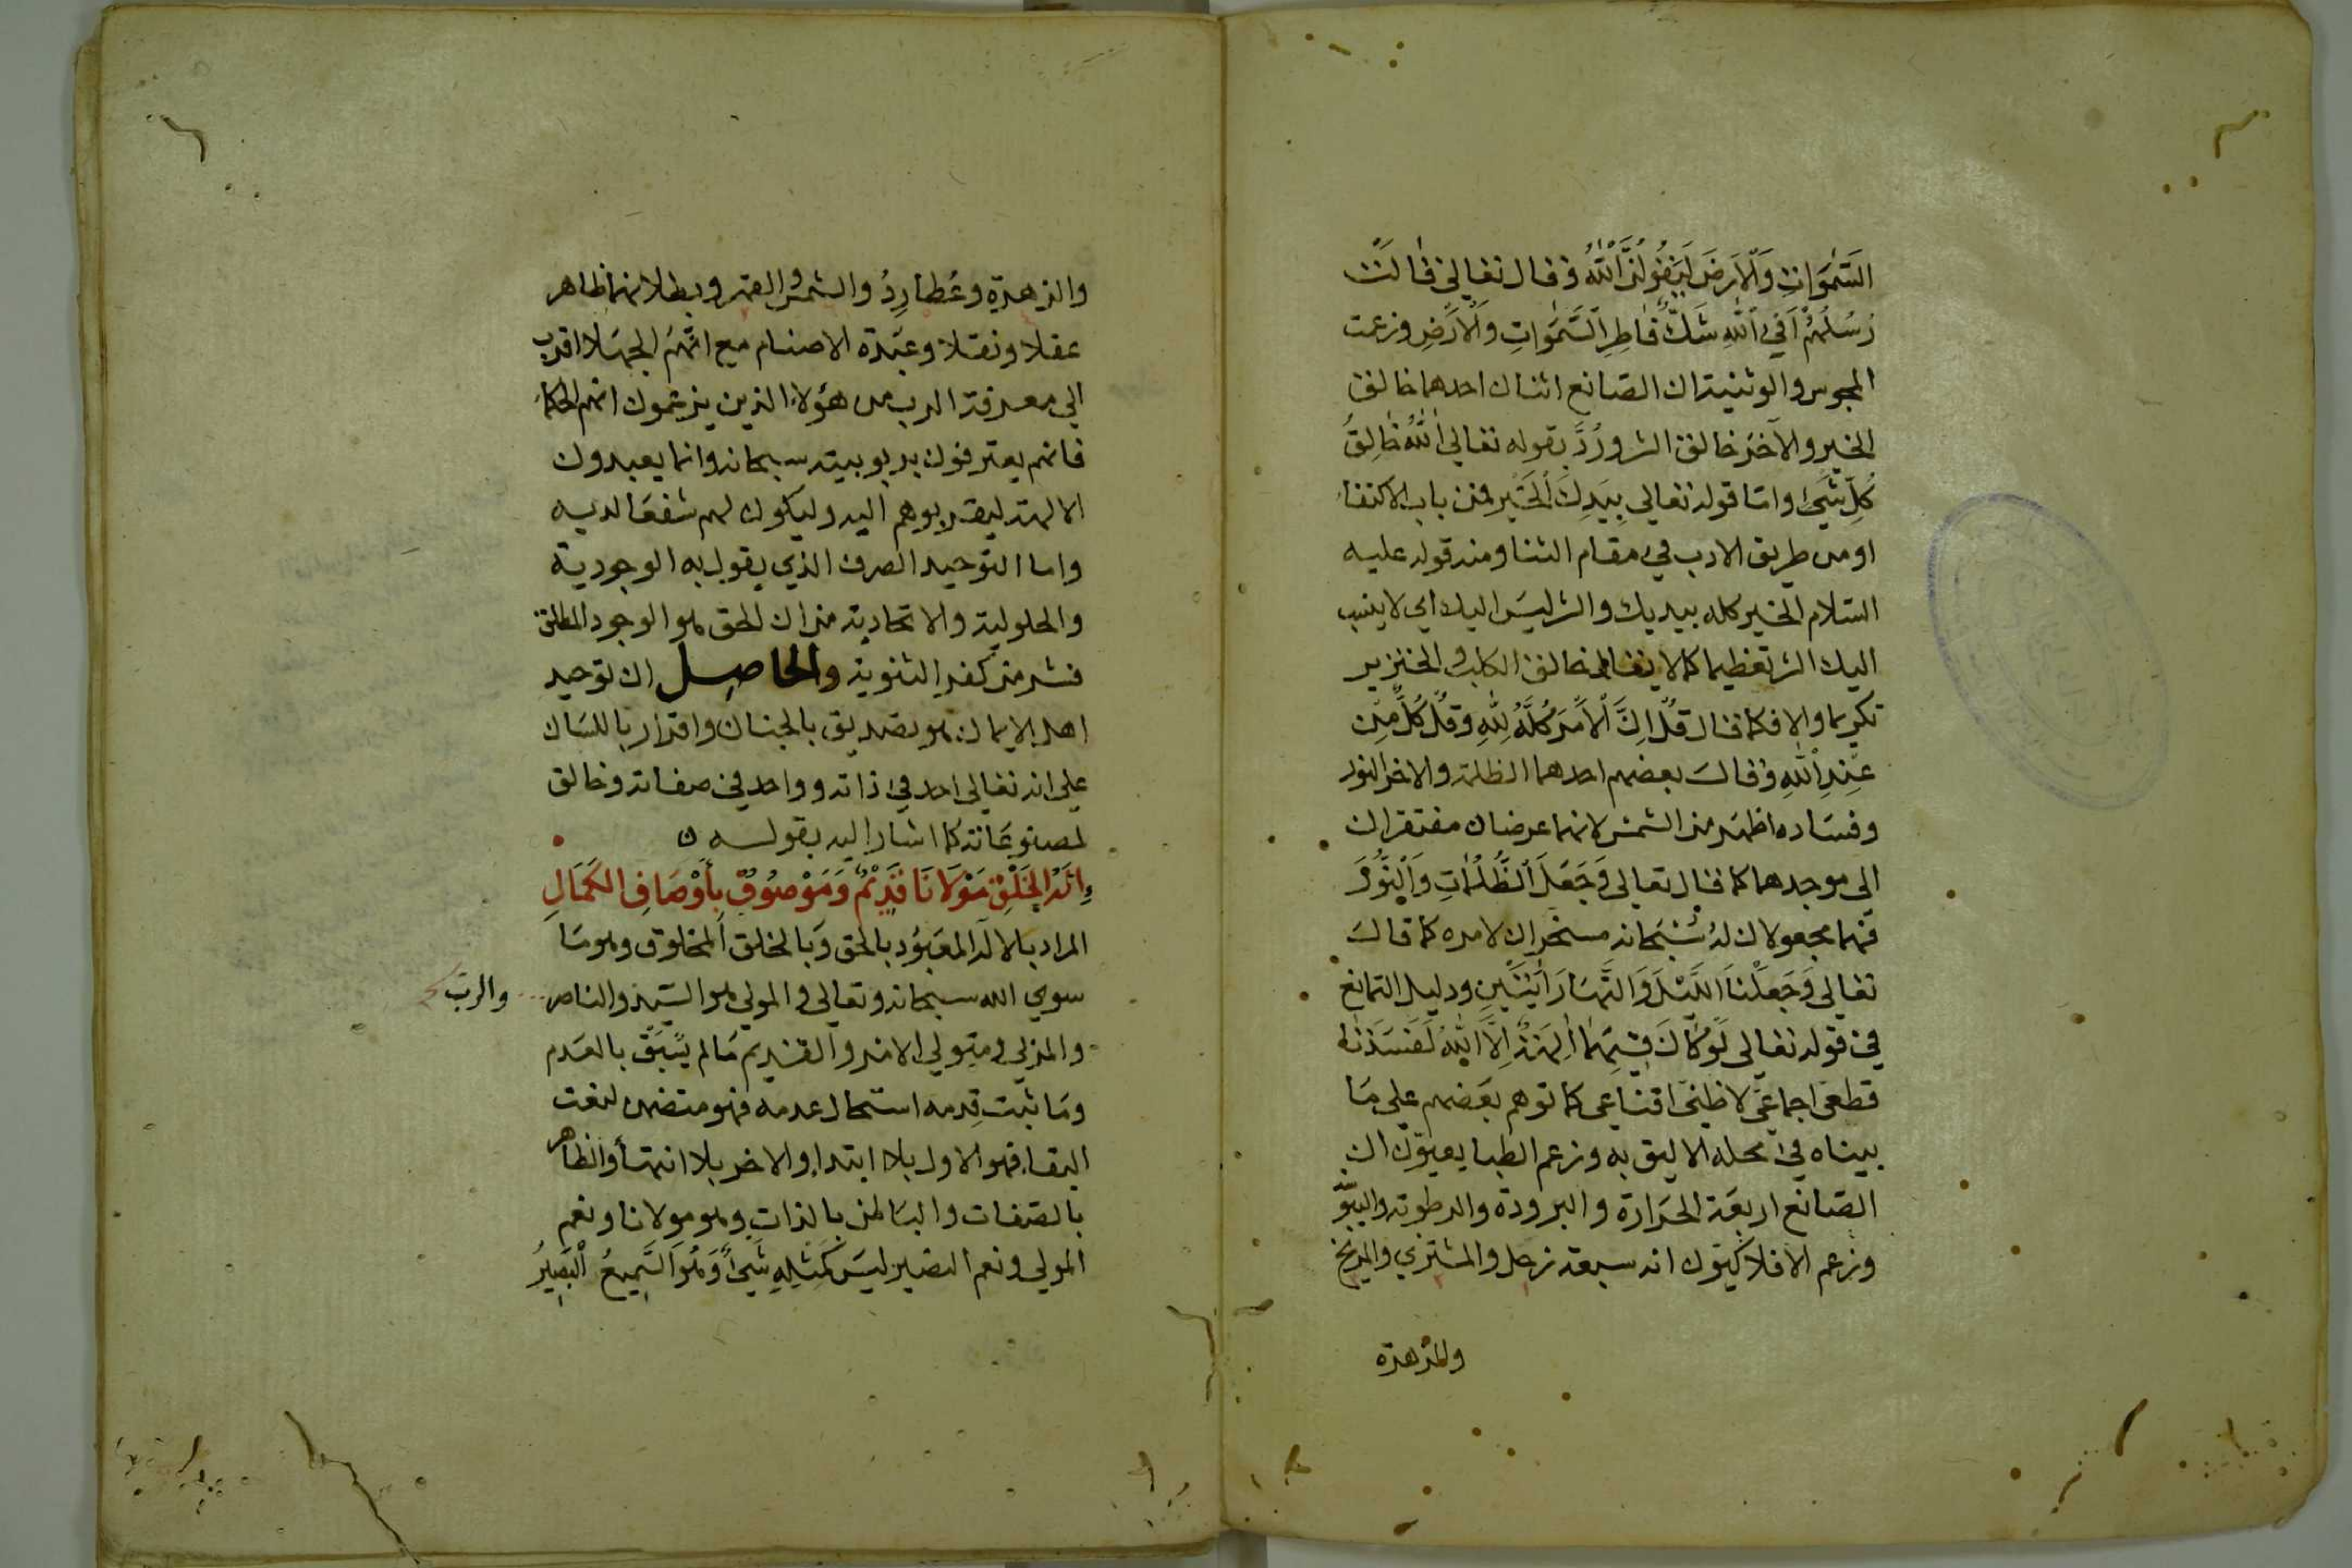 السَّمٰوَاتِ وَالْاَرْضَ لَيَقُوْلُنَّ اللّٰهُ وقال تعالى قالت
رُسُلُهُمْ اَفِي اللّٰهِ شَكٌّ فَاطِرِ السَّمٰوَاتِ وَالْاَرْضِ وزعمت
المجوس والوثنية ان الصانع اثنان احدهما خالق
الخير والآخر خالق الشر ورُدَّ بقوله تعالى اَللّٰهُ خَالِقُ
كُلِّ شَيْءٍ واما قوله تعالى بِيَدِكَ الْخَيْر فمن باب الاكتفاء
او من طريق الادب في مقام الثنا ومنه قوله عليه
السلام الخير كله بيديك والشر ليس اليك اي لا ينسب
اليك الشر تعظيما كما لا يقال خالق الكلب والخنزير
تكريما والا فكما قال قُلْ اِنَّ الْاَمْرَ كُلَّهُ لِلّٰهِ وقُلْ كُلٌّ مِنْ
عِنْدِ اللّٰهِ وقال بعضهم احدهما الظلمة والاخر النور
وفساده اظهر من الشمس لانهما عرضان مفتقران
الى موجدهما كما قال تعالى وَجَعَلَ الظُّلُمَاتِ وَالنُّوْرَ
فهما مجعولان له سُبْحَانه مسخران لامره كما قال
تعالى وَجَعَلْنَا اللَّيْلَ وَالنَّهَارَ اٰيَتَيْنِ ودليل التمانع
في قوله تعالى لَوْ كَانَ فِيْهِمَا اٰلِهَةٌ اِلَّا اللّٰهُ لَفَسَدَتَا
قطعي اجماعي لا ظني اقناعي كما توهم بعضهم على ما
بيناه في محله الاليق به وزعم الطبايعيون ان
الصانع اربعة الحرارة والبرودة والرطوبة واليبو
وزعم الافلاكيون انه سبعة زحل والمشتري والمريخ
والزهرة
والزهرة وعُطارِدُ والشمس والقمر وبطلانهما ظاهر
عقلا ونقلا وعَبَدة الاصنام مع انهم الجهلا اقرب
الى معرفة الرب من هؤلاء الذين يزعمون انهم الحكماء
فانهم يعترفون بربوبيته سبحانه وانما يعبدون
الالهة ليقربوهم اليه وليكون لهم شفعا لديه
واما التوحيد الصرف الذي يقول به الوجودية
والحلولية والاتحادية من ان الحق هو الوجود المطلق
فشر من كفر الثنوية والحاصل ان توحيد
اهل الايمان هو تصديق بالجنان واقرار باللسان
على انه تعالى احد في ذاته وواحد في صفاته وخالق
لمصنوعاته كما اشار اليه بقوله
اِلٰهُ الْخَلْقِ مَوْلَانَا قَدِيْمٌ وَمَوْصُوْفٌ بِأَوْصَافِ الْكَمَالِ
المراد بالاله المعبود بالحق وبالخلق المخلوق وهو ما
سوى الله سبحانه وتعالى والمولى هو السيد والناصر
والرب
والمربي ومتولي الامر والقديم ما لم يُسْبَق بالعدم
وما ثبت قِدمه استحال عدمه فهو متضمن لنعت
البقاء فهو الاول بلا ابتداء والاخر بلا انتهاء والظاهر
بالصفات والباطن بالذات وهو مولانا ونعم
المولى ونعم النصير لَيْسَ كَمِثْلِهِ شَيْءٌ وَهُوَ السَّمِيعُ الْبَصِيْرُ